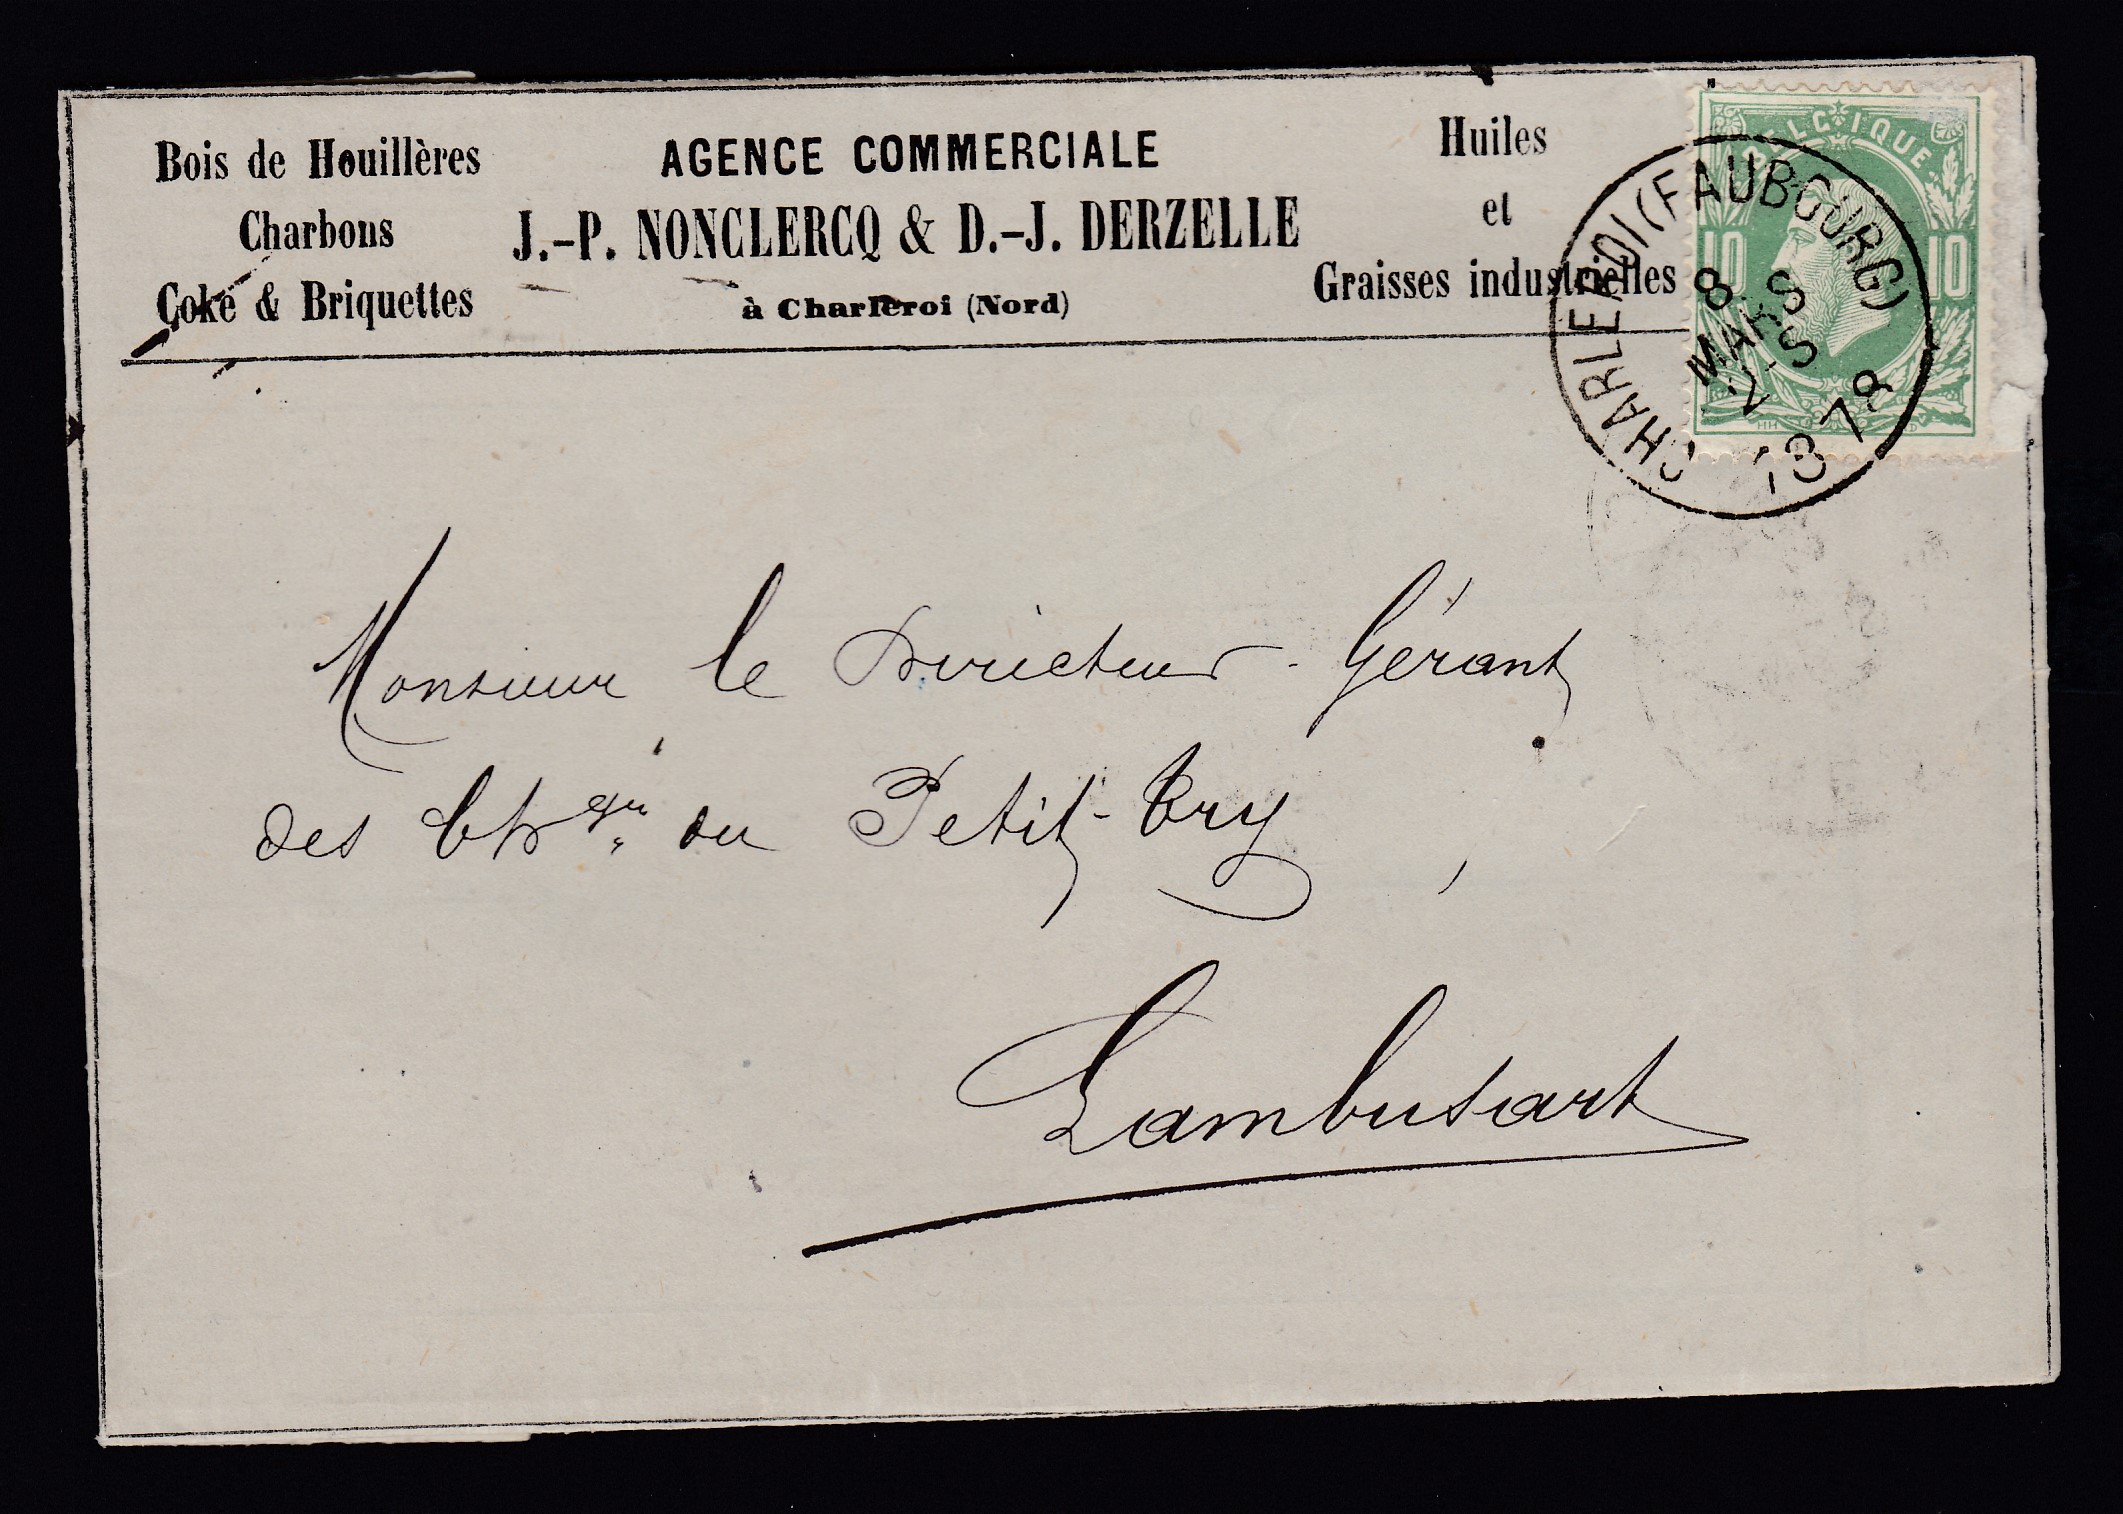 Bois de Houillères
Charbons
Coke & Briquettes
AGENCE COMMERCIALE
J.-P. NONCLERCQ & D.-J. DERZELLE
à Charleroi (Nord)
Huiles
et
Graisses industrielles
BELGIQUE
10 10
CHARLEROI (FAUBOURG)
8 MARS
2-S
1878
Monsieur le Directeur-Gérant
des du Petit-Try,
Lambusart